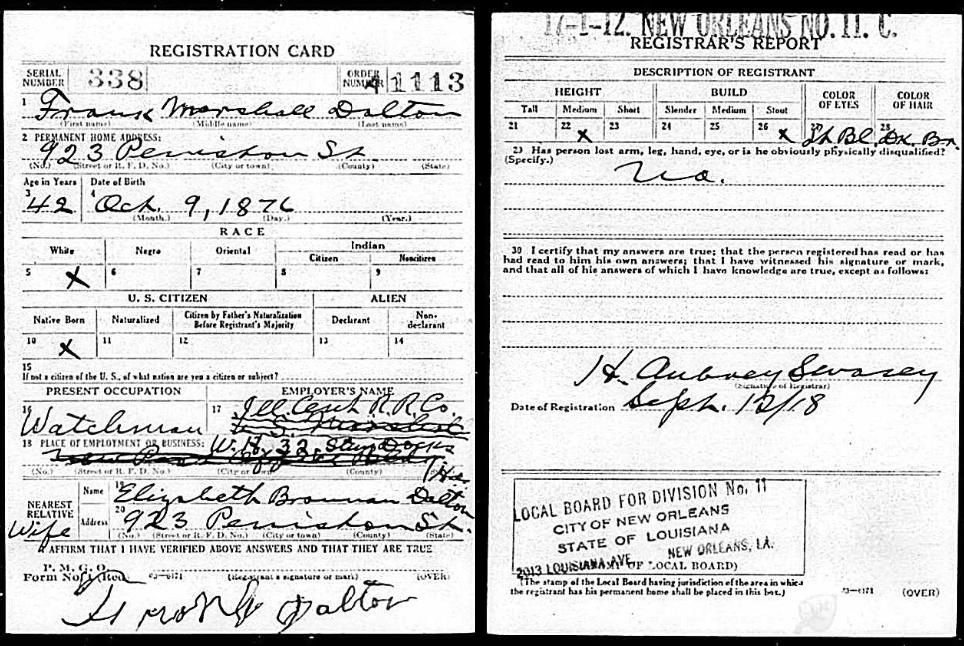 REGISTRATION CARD
SERIAL NUMBER 338 ORDER NUMBER 1113
1 Frank Marshall Dalton
(First name) (Middle name) (Last name)
2 PERMANENT HOME ADDRESS:
923 Peniston St.
(No.) (Street or R. F. D. No.) (City or town) (County) (State)
Age in Years Date of Birth
3 4
42 Oct. 9, 1876
(Month.) (Day.) (Year.)
RACE
White Negro Oriental Indian
Citizen Noncitizen
5 X 6 7 8 9
U. S. CITIZEN ALIEN
Native Born Naturalized Citizen by Father's Naturalization Before Registrant's Majority Declarant Non-declarant
10 X 11 12 13 14
15
If not a citizen of the U. S., of what nation are you a citizen or subject?
PRESENT OCCUPATION EMPLOYER'S NAME
16 Watchman 17 Ill Cent R. R. Co.
18 PLACE OF EMPLOYMENT OR BUSINESS:
(No.) (Street or R. F. D. No.) (City or town) (County)
NEAREST RELATIVE Name 19 Elizabeth Dalton
Wife Address 20 923 Peniston St.
(No.) (Street or R. F. D. No.) (City or town) (County) (State)
I AFFIRM THAT I HAVE VERIFIED ABOVE ANSWERS AND THAT THEY ARE TRUE
P. M. G. O.
Form No. 1 (Red) 03—6171 (Registrant's signature or mark) (OVER)
Frank Dalton
17-1-12. NEW ORLEANS NO. 11. C.
REGISTRAR'S REPORT
DESCRIPTION OF REGISTRANT
HEIGHT BUILD COLOR OF EYES COLOR OF HAIR
Tall Medium Short Slender Medium Stout
21 22 X 23 24 25 26 X 27 Lt Bl. 28 Dk. Br.
29 Has person lost arm, leg, hand, eye, or is he obviously physically disqualified?
(Specify.)
No.
30 I certify that my answers are true; that the person registered has read or has
had read to him his own answers; that I have witnessed his signature or mark,
and that all of his answers of which I have knowledge are true, except as follows:
H. Aubrey Swasey
(Signature of Registrar)
Date of Registration Sept. 12/18
LOCAL BOARD FOR DIVISION No. 11
CITY OF NEW ORLEANS
STATE OF LOUISIANA
2013 LOUISIANA AVE. NEW ORLEANS, LA.
OF LOCAL BOARD)
(The stamp of the Local Board having jurisdiction of the area in which
the registrant has his permanent home shall be placed in this box.)
03—6171 (OVER)